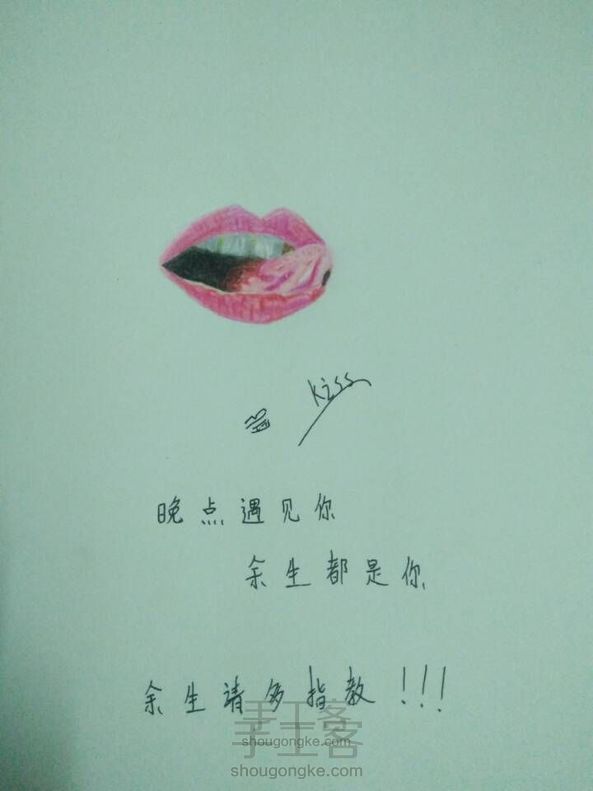 kiss
晚点遇见你
余生都是你
余生请多指教!!!
手工客
shougongke.com
手工客
shougongke.com